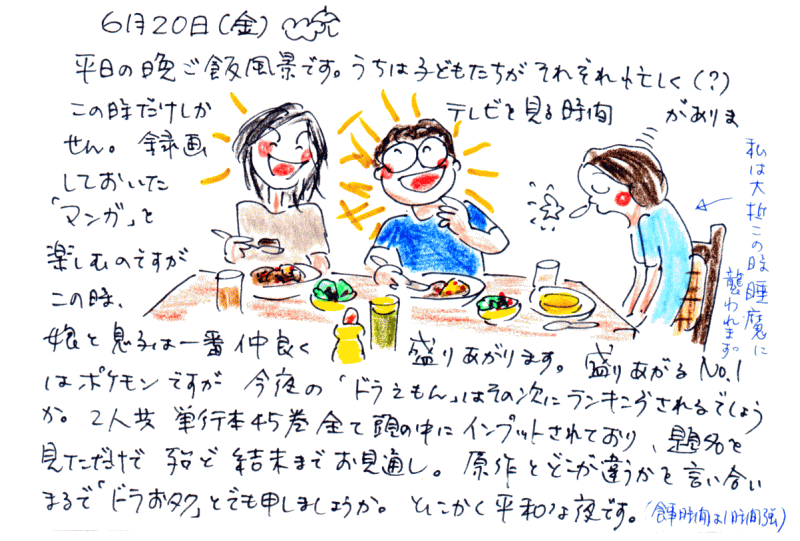 6月20日(金)
平日の晩ご飯風景です。うちは子どもたちがそれぞれ忙しく(?)
この時だけしか テレビを見る時間 がありま
せん。録画
しておいた
「マンガ」を
楽しむのですが
この時、
娘と息子は一番仲良く 盛りあがります。盛りあがるNo.1
はポケモンですが 今夜の「ドラえもん」はその次にランキングされるでしょう
か。2人共 単行本45巻全て頭の中にインプットされており、題名を
見ただけで 殆ど結末までお見通し。原作とどこが違うかを言い合い
まるで「ドラおタク」とでも申しましょうか。とにかく平和な夜です。(食事時間は1時間強)
私は大抵この時睡魔に
襲われます。